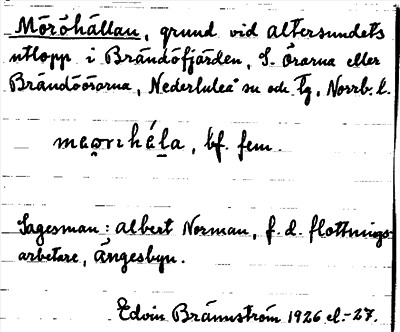 Möröhällan, grund vid altersundets
utlopp i Brändöfjärden, S. Örarna eller
Brändöörarna, Nederluleå sn och tg, Norrb. l.
bf. fem.
Sagesman: Albert Norman, f. d. flottnings-
arbetare, Ängesbyn.
Edvin Brännström 1926 el.-27.